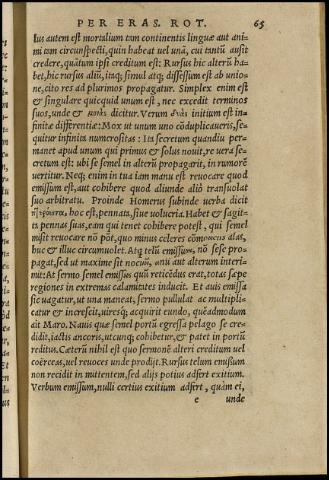 PER ERAS. ROT. 65
Ius autem est mortalium tam continentis linguæ aut ani
mi tam circunspecti, quin habeat uel unū, cui tantū ausit
credere, quātum ipsi creditum est: Rursus hic alterū ha
bet, hic rursus aliū, itaq; simul atq; discessum est ab unio-
ne, cito res ad plurimos propagatur. Simplex enim est
& singulare quicquid unum est, nec excedit terminos
suos, unde & μονὰς dicitur. Verum δυὰς initium est in
finitæ differentiæ: Mox ut unum uno cōduplicaueris, se-
quitur infinita numerositas: Ita secretum quandiu per-
manet apud unum qui primus & solus nouit, re uera se-
cretum est: ubi se semel in alterū propagarit, in rumorē
uertitur. Neq; enim in tua iam manu est reuocare quod
emissum est, aut cohibere quod aliunde aliò transuolat
suo arbitratu. Proinde Homerus subinde uerba dicit
πτερόεντα, hoc est, pennata, siue uolucria. Habet & sagit-
ta pennas suas, eam qui tenet cohibere potest, qui semel
misit reuocare nō pōt, quo minus celeres alas,
huc & illuc circumuolet. Atq telū emissum, nō sese pro-
pagat, sed ut maxime sit nocuū, unū aut alterum interi-
mit: At sermo semel emissus quū reticēdus erat, totas sæpe
regiones in extremas calamitates inducit. Et auis emissa
sic uagatur, ut una maneat, sermo pullulat ac multipli-
catur & increscit, uiresq; acquirit eundo, quēadmodum
ait Maro. Nauis quæ semel portū egressa pelago se cre-
didit, iactis ancoris, utcunq; cohibetur, & patet in portū
reditus. Cæterū nihil est quo sermonē alteri creditum uel
coërceas, uel reuoces unde prodijt. Rursus telum emissum
non recidit in mittentem, sed alijs potius adfert exitium.
Verbum emissum, nulli certius exitium adfert, quàm ei,
e unde